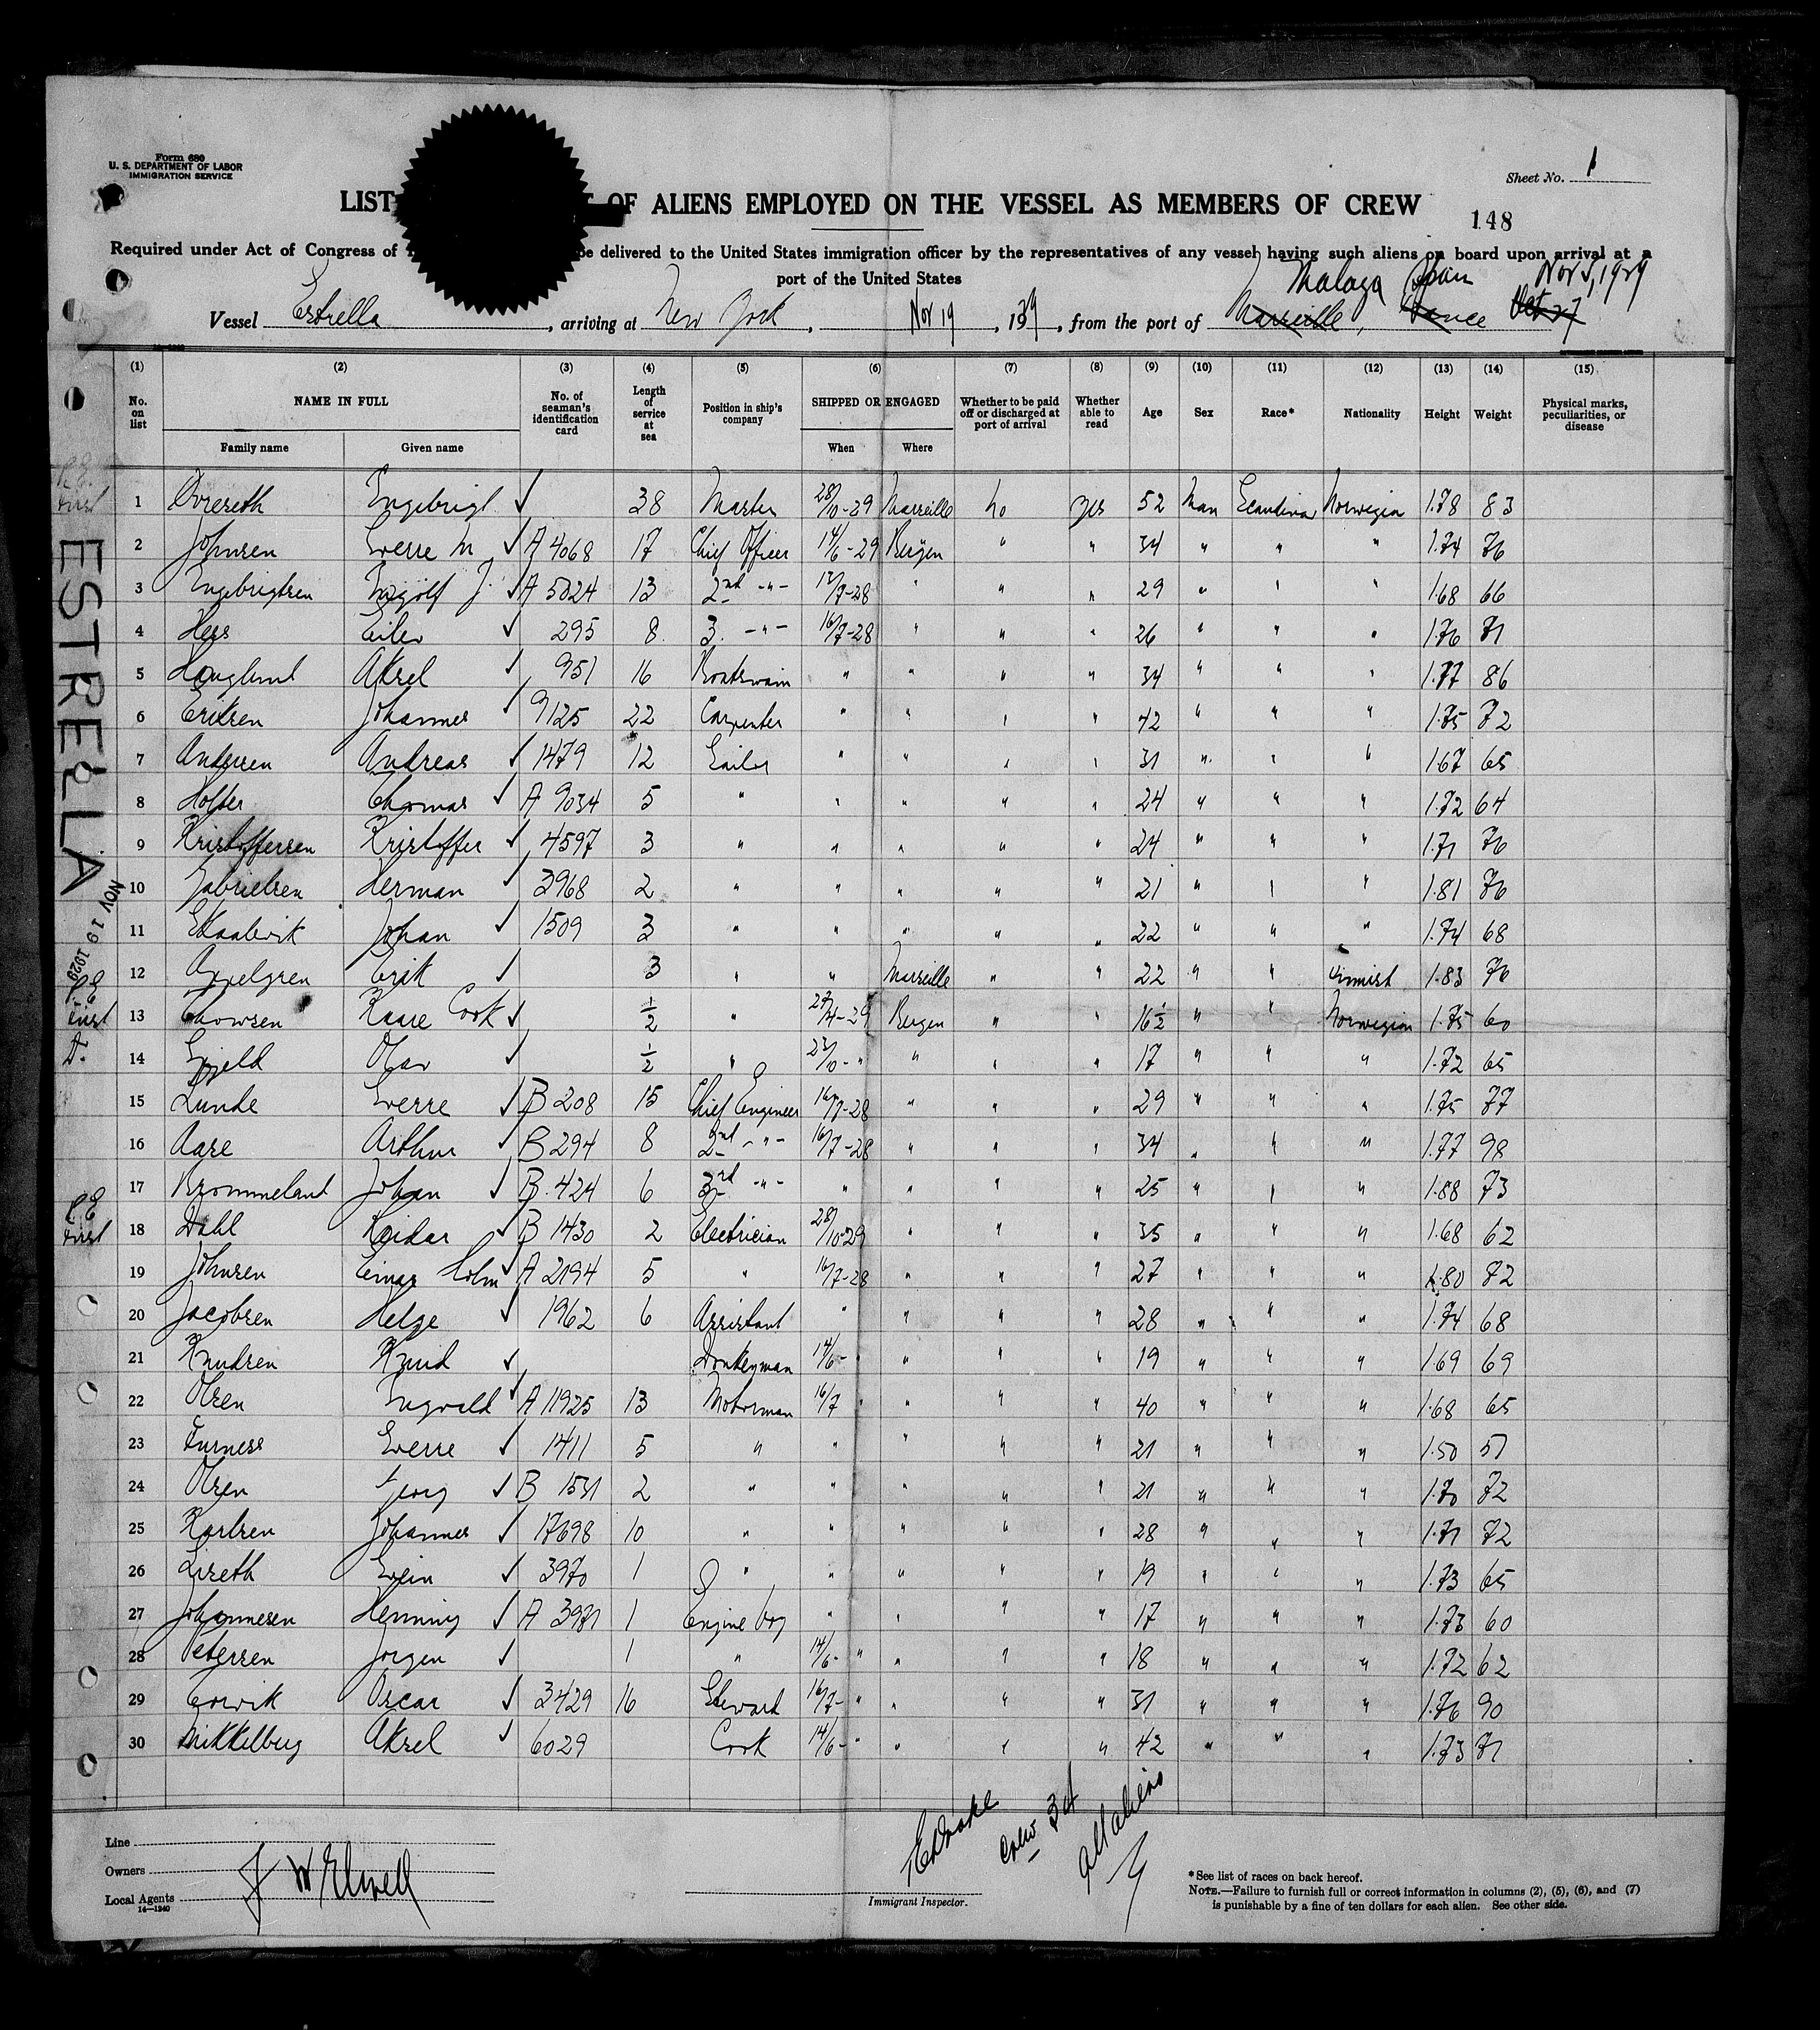 Form 680
U. S. DEPARTMENT OF LABOR
IMMIGRATION SERVICE
Sheet No. 1
LIST OF ALIENS EMPLOYED ON THE VESSEL AS MEMBERS OF CREW
148
Required under Act of Congress of be delivered to the United States immigration officer by the representatives of any vessel having such aliens on board upon arrival at a
port of the United States
Malaga Spain Nov 5, 1929
Vessel Estrella, arriving at New York, Nov 19, 1929, from the port of Marseille, France Oct 27
(1) (2) (3) (4) (5) (6) (7) (8) (9) (10) (11) (12) (13) (14) (15)
No. on list NAME IN FULL Family name Given name No. of seaman's identification card Length of service at sea Position in ship's company SHIPPED OR ENGAGED When Where Whether to be paid off or discharged at port of arrival Whether able to read Age Sex Race* Nationality Height Weight Physical marks, peculiarities, or disease
1 Ingebrigt 38 Master 28/10-29 Marseille no yes 52 Man Scandinav Norwegian 1.78 83
2 Johnsen Sverre M A 4068 17 Chief Officer 14/6-29 Bergen " " 34 " " " 1.74 76
3 Ingebrigtsen Ingolf J. A 5024 13 2nd -"- 12/7-28 " " " 29 " " " 1.68 66
4 Hess Eilev 295 8 3. -"- 16/7-28 " " " 26 " " " 1.76 71
5 Hauglund Aksel 951 16 Boatswain " " " " 34 " " " 1.77 86
6 Eriksen Johannes 9125 22 Carpenter " " " " 42 " " " 1.75 72
7 Andersen Andreas 1479 12 Sailor " " " " 31 " " " 1.67 65
8 Holter Thomas A 9034 5 " " " " " 24 " " " 1.72 64
9 Kristoffersen Kristoffer 4597 3 " " " " " 24 " " " 1.71 76
10 Gabrielsen Herman 3968 2 " " " " " 21 " " " 1.81 76
11 Skaalevik Johan 1509 3 " " " " " 22 " " " 1.74 68
12 Appelgren Erik 3 " " Marseille " " 22 " " 1.83 76
13 Thowsen Kaare Cook 1/2 " 27/4-29 Bergen " " 16 1/2 " " Norwegian 1.75 60
14 Olav 1/2 " 23/10-" " " " 17 " " " 1.72 65
15 Lunde Sverre B 208 15 Chief Engineer 16/7-28 " " " 29 " " " 1.75 77
16 Aase Arthur B 294 8 2nd -"- 16/7-28 " " " 34 " " " 1.77 98
17 Brommeland Johan B. 424 6 3rd -"- " " " " 25 " " " 1.88 73
18 Dahl Reidar B 1430 2 Electrician 28/10-29 " " " 35 " " " 1.68 62
19 Johnsen Einar Holm A 2194 5 " 16/7-28 " " " 27 " " " 1.80 72
20 Jacobsen Helge 1962 6 Assistant " " " " 28 " " " 1.74 68
21 Knudsen Knud Donkeyman 14/6- " " " " 19 " " " 1.69 69
22 Olsen Ingvald A 11925 13 Motorman 16/7 " " " " 40 " " " 1.68 65
23 Furness Sverre 1411 5 " " " " " 21 " " " 1.50 57
24 Olsen Georg B 1531 2 " " " " " 21 " " " 1.70 72
25 Karlsen Johannes 17698 10 " " " " " 28 " " " 1.71 72
26 Lireth Svein 3970 1 " " " " " 19 " " " 1.73 65
27 Johannesen Henning A 3971 1 Engine boy " " " " 17 " " " 1.73 60
28 Petersen Jørgen 1 " 14/6- " " " " 18 " " " 1.72 62
29 Torvik Oscar 3429 16 Steward 16/7- " " " " 31 " " " 1.76 90
30 Mikkelburg Aksel 6029 Cook 14/6- " " " " 42 " " " 1.73 71
ESTRELLA
NOV 19 1929
Line
Owners
Local Agents
14-1240
J W Elwell
Crew 34
all aliens
Immigrant Inspector.
*See list of races on back hereof.
NOTE.—Failure to furnish full or correct information in columns (2), (5), (6), and (7)
is punishable by a fine of ten dollars for each alien. See other side.